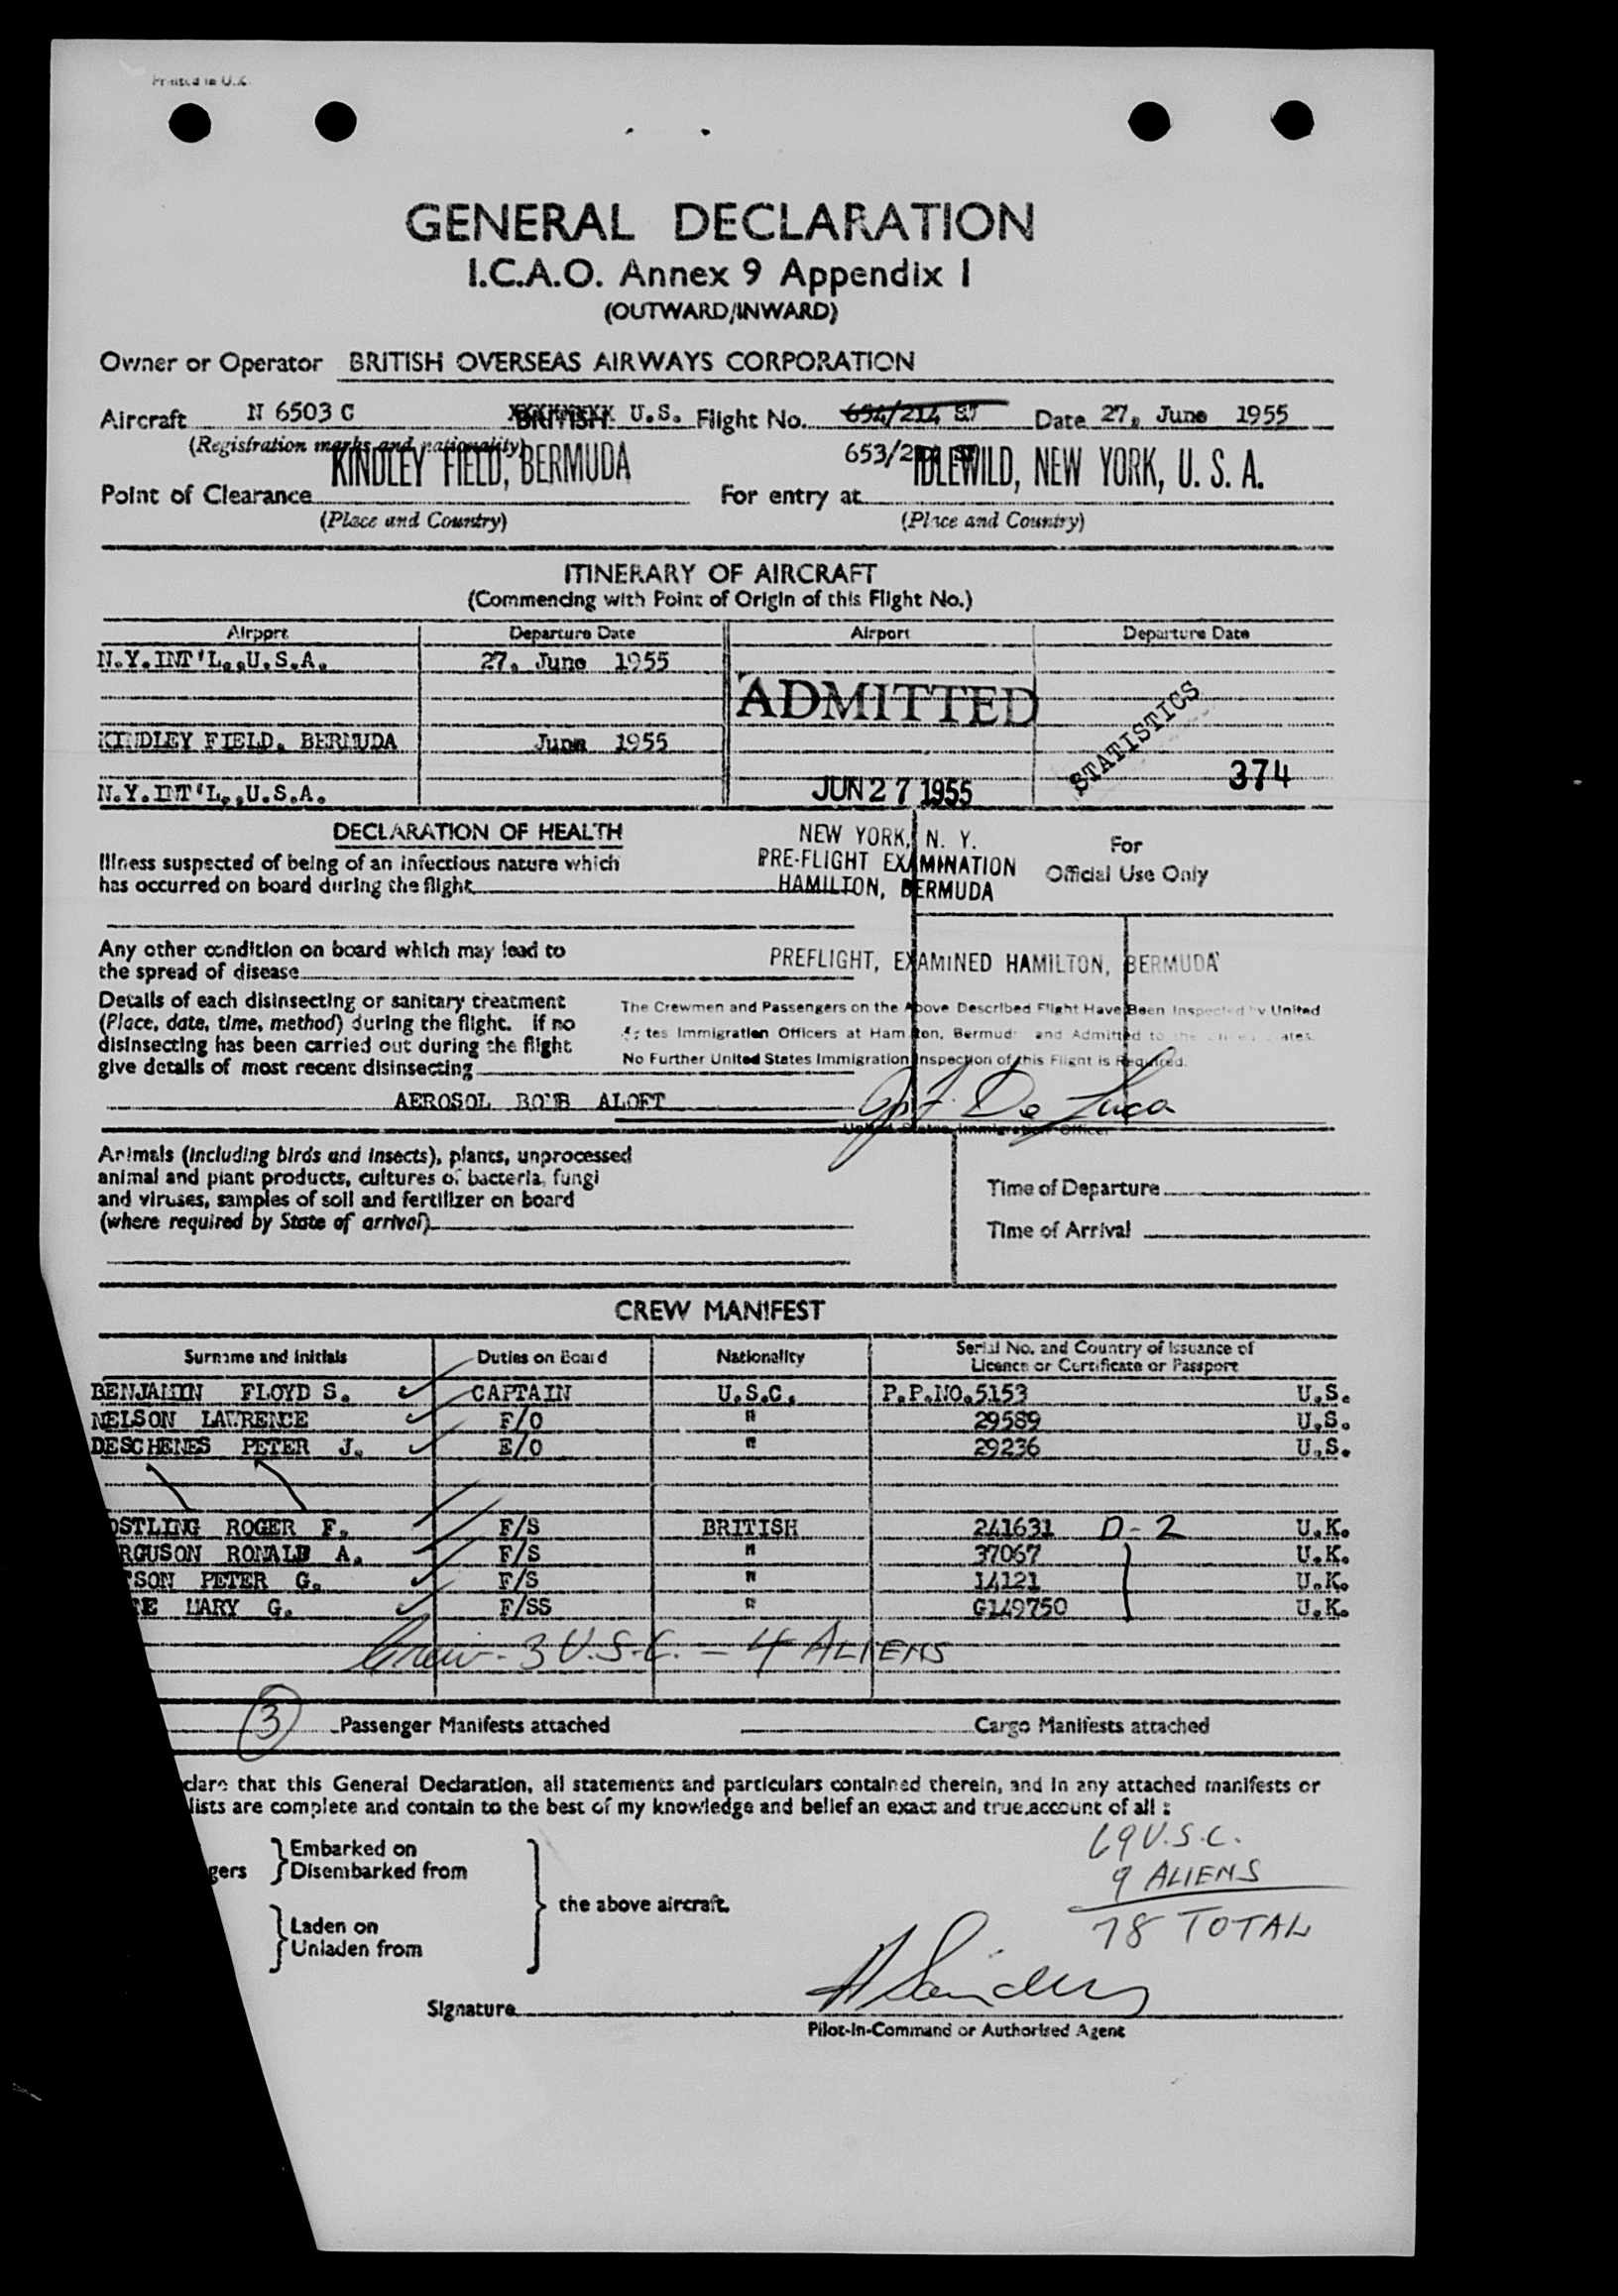 Printed in U.K.
GENERAL DECLARATION
I.C.A.O. Annex 9 Appendix I
(OUTWARD/INWARD)
Owner or Operator BRITISH OVERSEAS AIRWAYS CORPORATION
Aircraft N 6503 C BRITISH U.S. Flight No. 654/214 ST Date 27. June 1955
(Registration marks and nationality) 653/
KINDLEY FIELD, BERMUDA IDLEWILD, NEW YORK, U. S. A.
Point of Clearance For entry at
(Place and Country) (Place and Country)
ITINERARY OF AIRCRAFT
(Commencing with Point of Origin of this Flight No.)
Airport Departure Date Airport Departure Date
N.Y.INT'L.,U.S.A. 27. June 1955
ADMITTED
STATISTICS
KINDLEY FIELD. BERMUDA June 1955
374
N.Y.INT'L.,U.S.A. JUN 27 1955
DECLARATION OF HEALTH NEW YORK, N. Y.
For
Illness suspected of being of an infectious nature which PRE-FLIGHT EXAMINATION
Official Use Only
has occurred on board during the flight HAMILTON, BERMUDA
Any other condition on board which may lead to
the spread of disease PREFLIGHT, EXAMINED HAMILTON, BERMUDA
Details of each disinsecting or sanitary treatment The Crewmen and Passengers on the Above Described Flight Have Been Inspected by United
(Place, date, time, method) during the flight. If no Immigration Officers at Hamilton, Bermuda and Admitted to the
disinsecting has been carried out during the flight No Further United States Immigration Inspection of this Flight is Required.
give details of most recent disinsecting
AEROSOL BOMB ALOFT De Luca
United States Immigration Officer
Animals (including birds and insects), plants, unprocessed
animal and plant products, cultures of bacteria, fungi
and viruses, samples of soil and fertilizer on board
(where required by State of arrival)
Time of Departure
Time of Arrival
CREW MANIFEST
Surname and Initials Duties on Board Nationality Serial No. and Country of Issuance of
Licence or Certificate or Passport
BENJAMIN FLOYD S. CAPTAIN U.S.C. P.P.NO.5153 U.S.
NELSON LAWRENCE F/O " 29589 U.S.
DESCHENES PETER J. E/O " 29236 U.S.
OSTLING ROGER F. F/S BRITISH 241631 D-2 U.K.
RGUSON RONALD A. F/S " 37067 U.K.
TSON PETER G. F/S " 14121 U.K.
E MARY G. F/SS " G149750 U.K.
Crew - 3 U.S.C. - 4 ALIENS
3 Passenger Manifests attached Cargo Manifests attached
clare that this General Declaration, all statements and particulars contained therein, and in any attached manifests or
lists are complete and contain to the best of my knowledge and belief an exact and true account of all :
69 U.S.C.
Embarked on
gers Disembarked from
9 ALIENS
the above aircraft.
Laden on
Unladen from
78 TOTAL
Signature
Pilot-in-Command or Authorised Agent